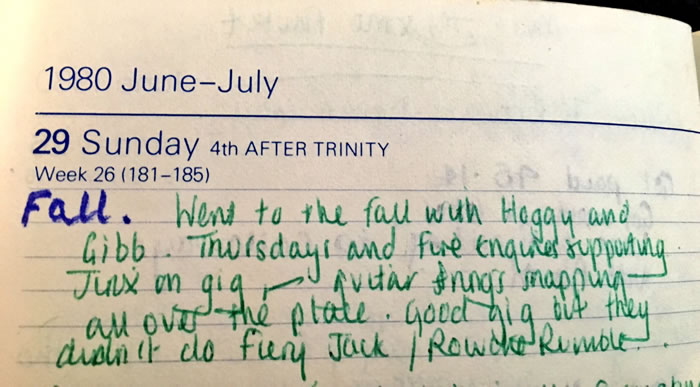 1980 June–July
29 Sunday 4th AFTER TRINITY
Week 26 (181–185)
Fall. Went to the Fall with Hoggy and
Gibb. Thursdays and Fire Engines supporting.
on gig — guitar strings snapping
all over the place. Good gig but they
didn't do Fiery Jack / Rowche Rumble.